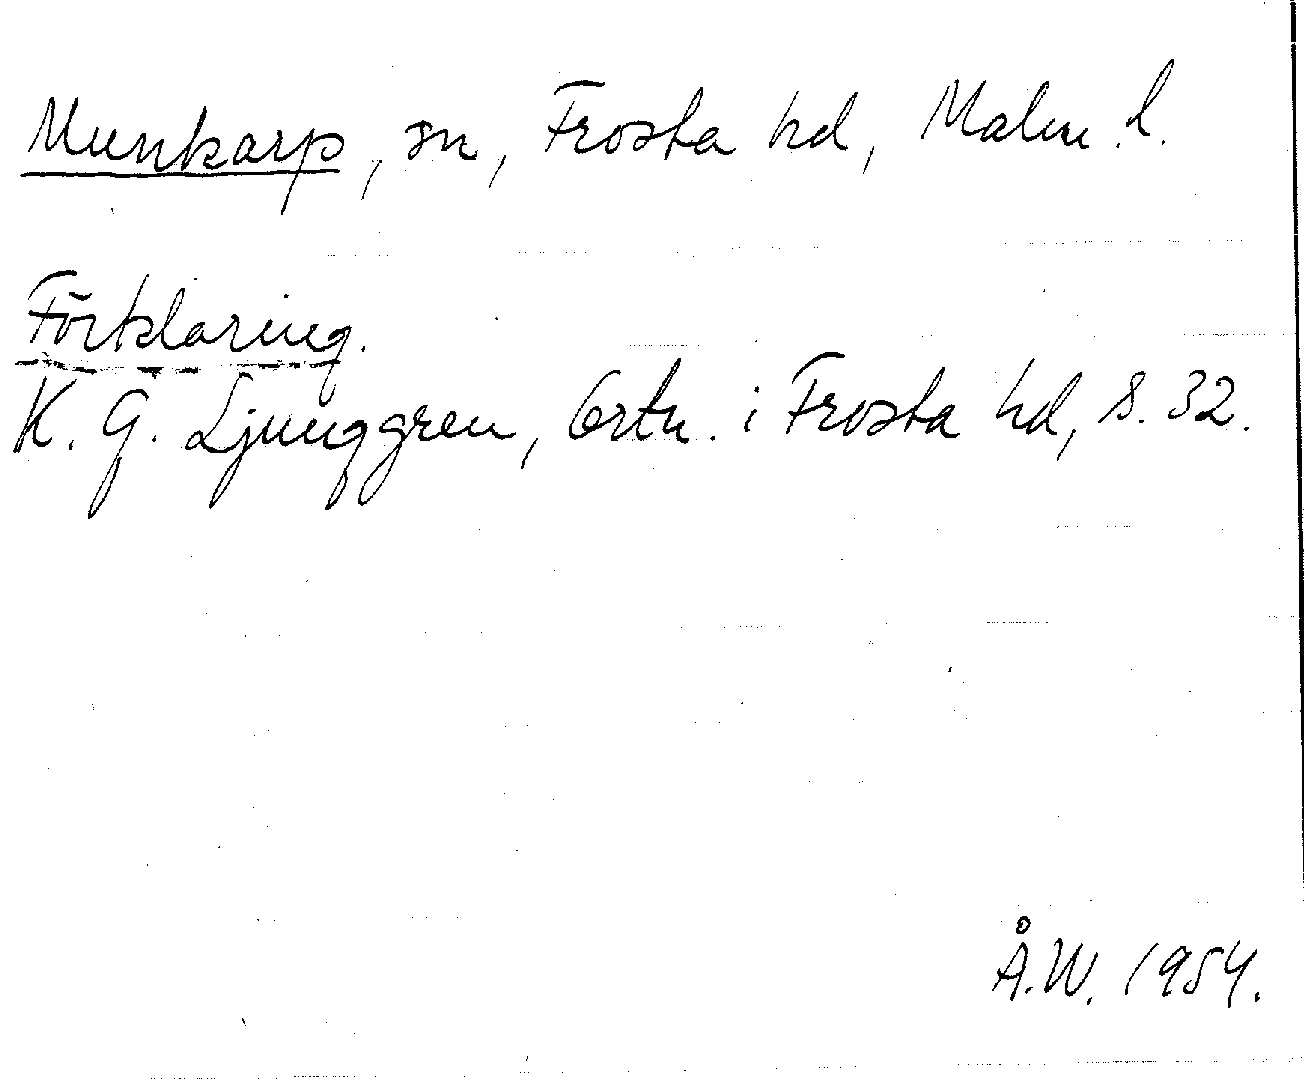 Munkarp, sn, Frosta hd, Malm. l.
Förklaring.
K. G. Ljunggren, Ortn. i Frosta hd, s. 32.
Å.W. 1954.